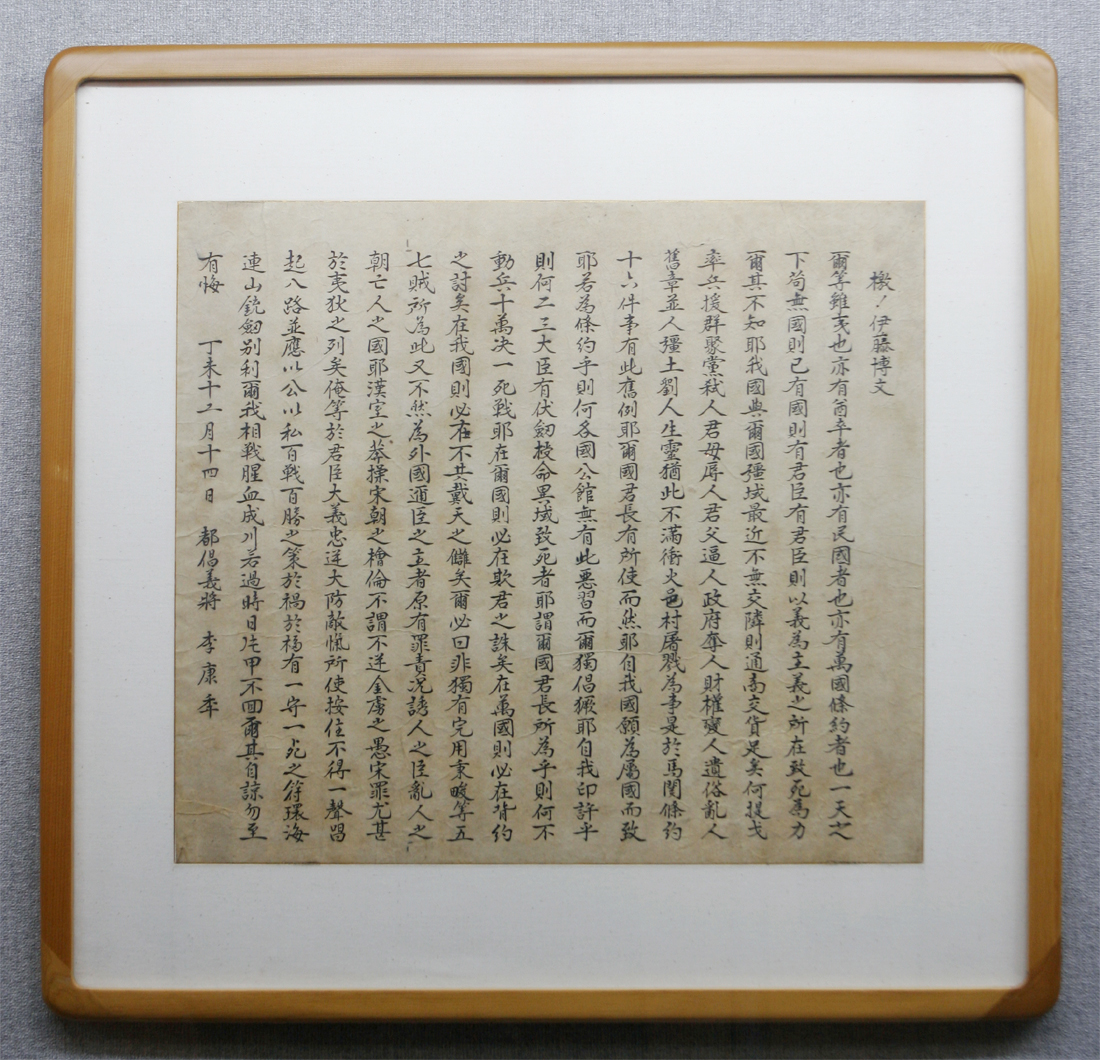 檄!伊藤博文
爾等雖夷也亦有酋卒者也亦有民國者也亦有萬國條約者也一天之
下苟無國則已有國則有君臣有君臣則以義為主義之所在致死為力
爾其不知耶我國與爾國疆域最近不無交隣則通商交貨足矣何提戈
率兵援群聚黨弒人君母辱人君父逼人政府奪人財權變人遺俗亂人
舊章並人疆土劉人生靈猶此不滿衝火邑村屠戮為事是於馬關條約
十六件事有此舊例耶爾國君長有所使而然耶自我國願為屬國而致
耶若為條約乎則何各國公館無有此惡習而爾獨倡獗耶自我印許乎
則何二三大臣有伏劒投命異域致死者耶謂爾國君長所為乎則何不
動兵十萬決一死戰耶在爾國則必在欺君之誅矣在萬國則必在背約
之討矣在我國則必在不共戴天之讎矣爾必曰非獨有完用秉畯等五
七賊所為此又不然為外國逋臣之主者原有罪責况誘人之臣亂人之
朝亡人之國耶漢室之莽操宋朝之檜倫不謂不逆金虜之愚宋罪尤甚
於夷狄之列矣俺等於君臣大義忠逆大防敵愾所使按住不得一聲昌
起八路並應以公以私百戰百勝之策於禍於福有一守一死之符環海
連山銃劒別利爾我相戰腥血成川若過時日片甲不回爾其自諒勿至
有悔 丁未十二月十四日 都倡義將 李康秊